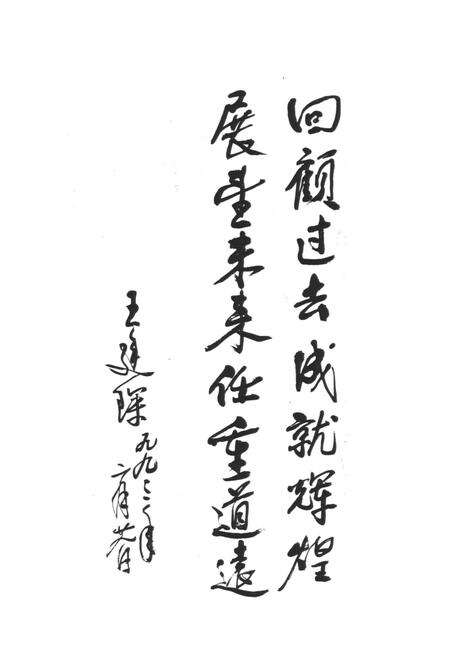 回顾过去成就辉煌
展望未来任重道远
王建琛
九九三年
六月廿日